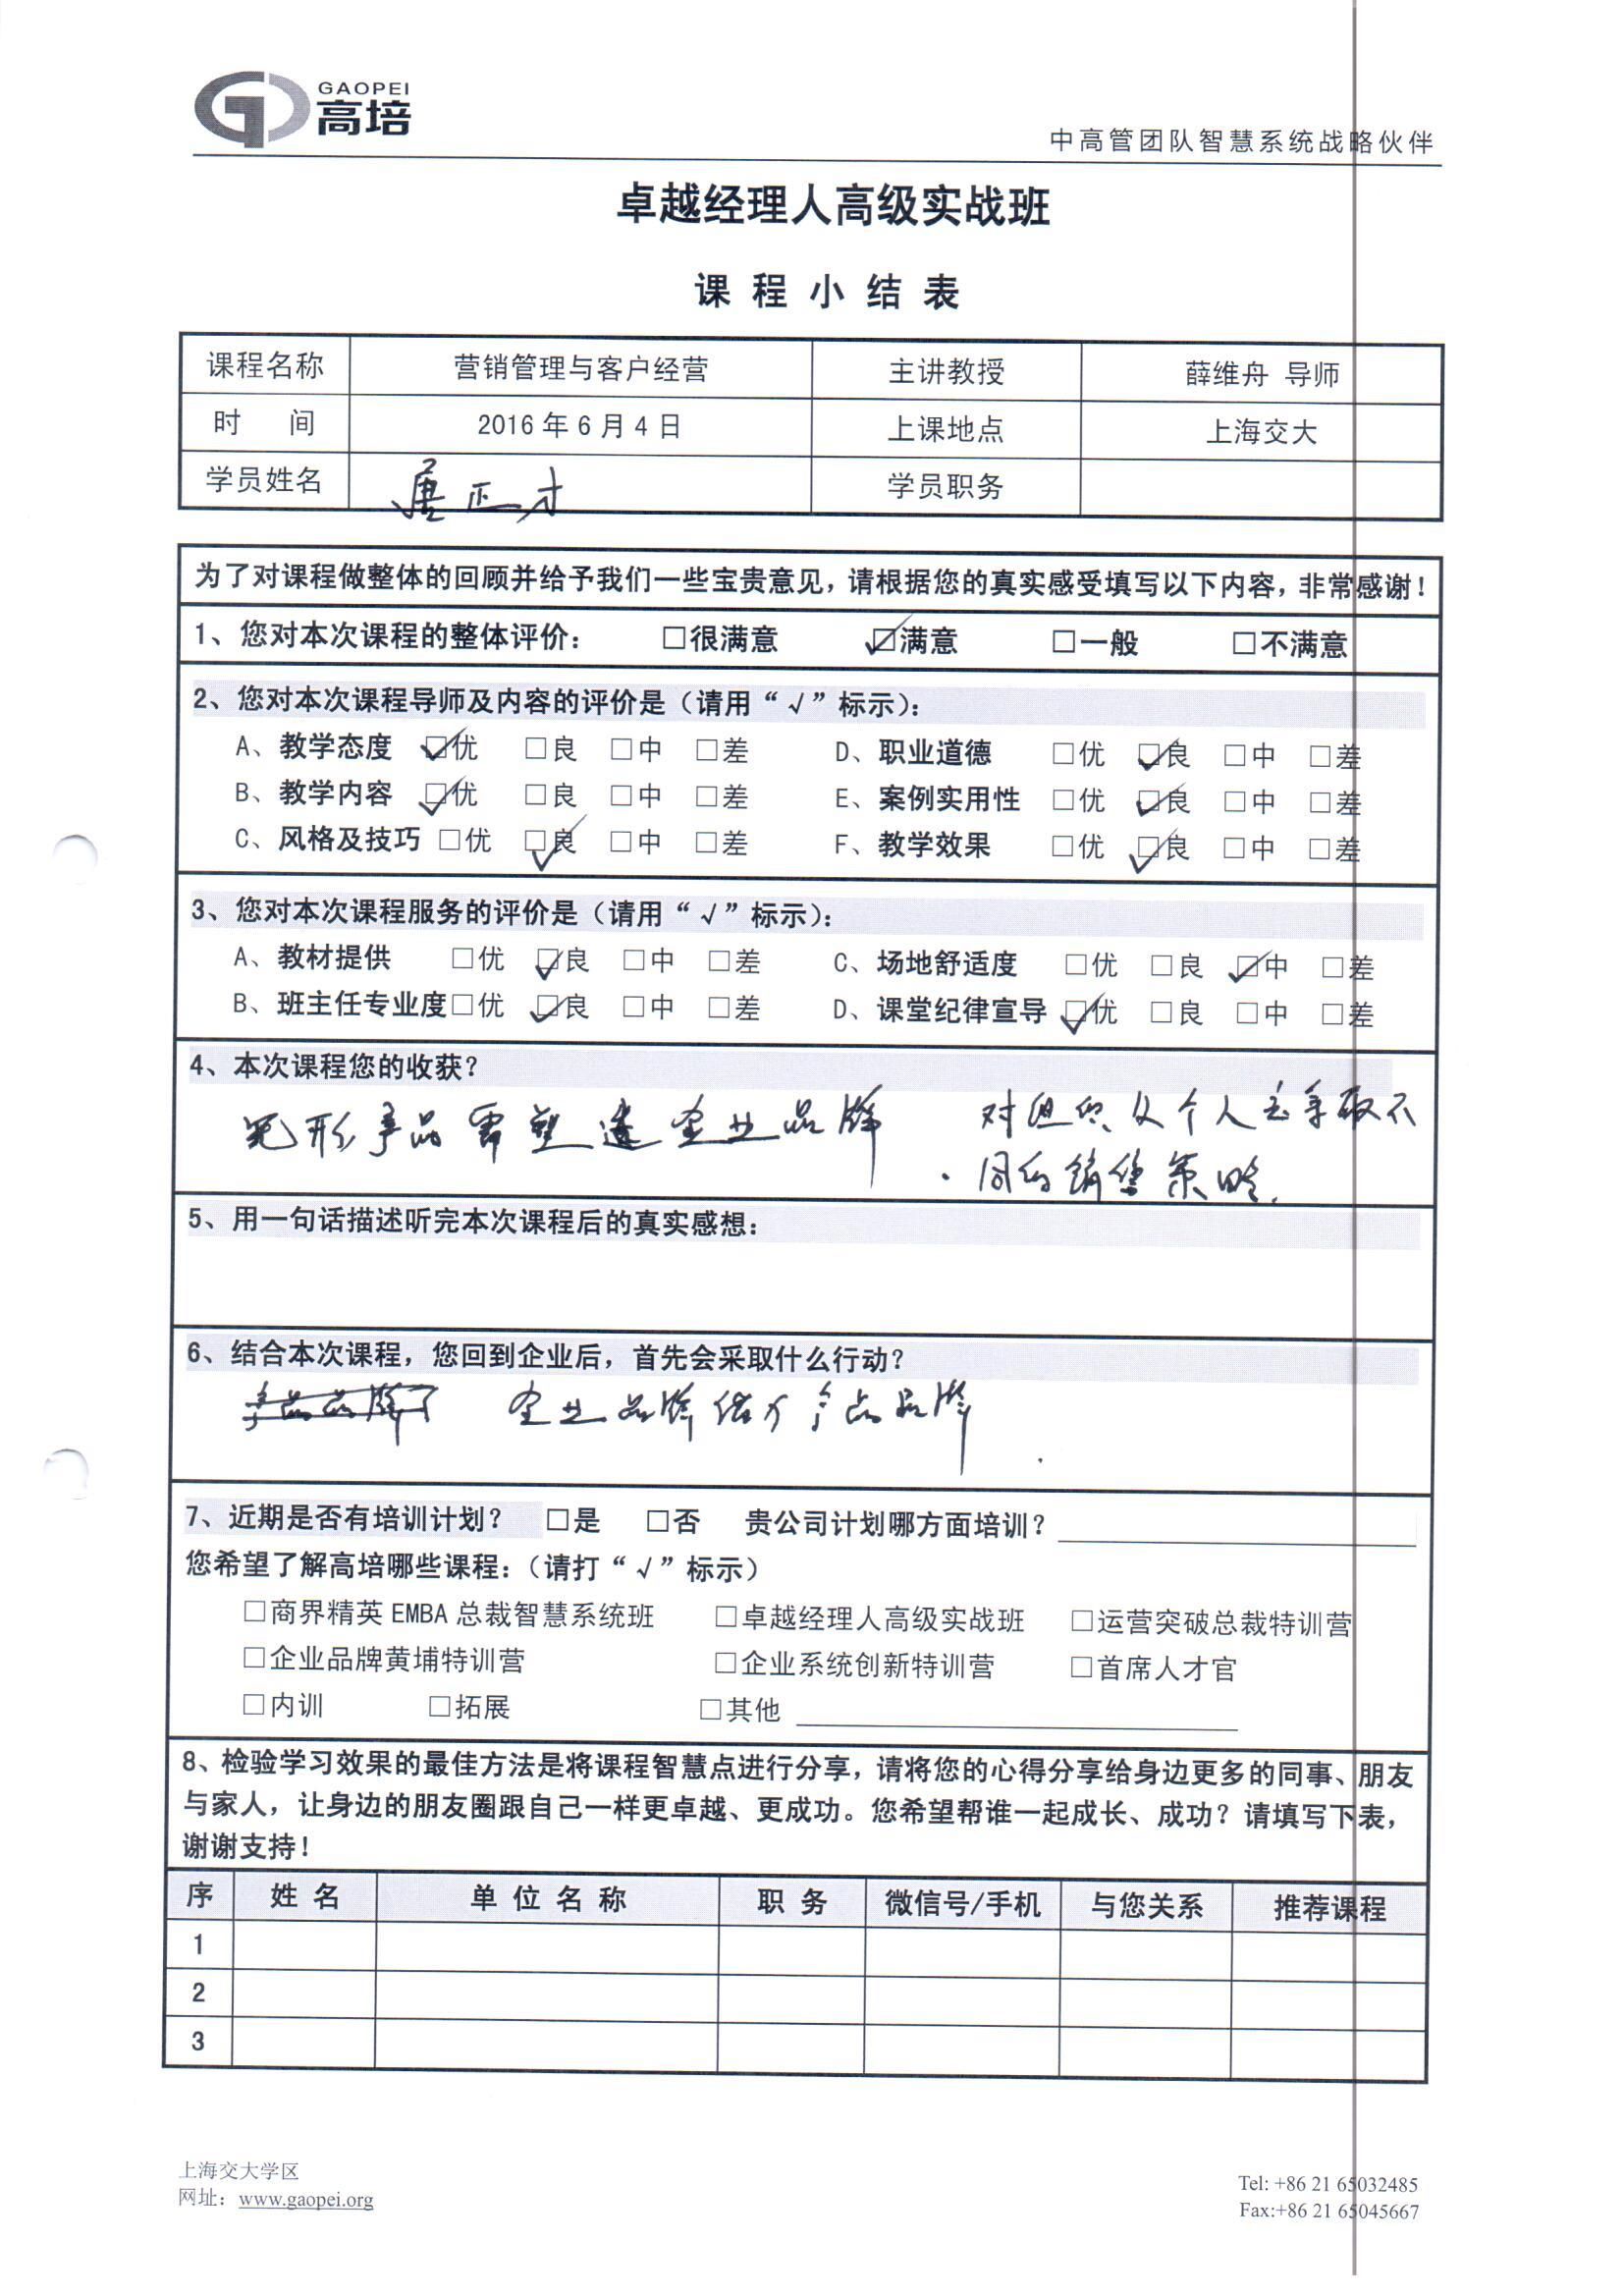 GAOPEI
高培
中高管团队智慧系统战略伙伴
卓越经理人高级实战班
课程小结表
课程名称 营销管理与客户经营 主讲教授 薛维舟 导师
时 间 2016年6月4日 上课地点 上海交大
学员姓名 唐正才 学员职务
为了对课程做整体的回顾并给予我们一些宝贵意见，请根据您的真实感受填写以下内容，非常感谢！
1、您对本次课程的整体评价： □很满意 ☑满意 □一般 □不满意
2、您对本次课程导师及内容的评价是（请用“√”标示）：
A、教学态度 ☑优 □良 □中 □差 D、职业道德 □优 ☑良 □中 □差
B、教学内容 ☑优 □良 □中 □差 E、案例实用性 □优 ☑良 □中 □差
C、风格及技巧 □优 ☑良 □中 □差 F、教学效果 □优 ☑良 □中 □差
3、您对本次课程服务的评价是（请用“√”标示）：
A、教材提供 □优 ☑良 □中 □差 C、场地舒适度 □优 □良 ☑中 □差
B、班主任专业度 □优 ☑良 □中 □差 D、课堂纪律宣导 ☑优 □良 □中 □差
4、本次课程您的收获？
形产品需塑造企业品牌 对组织从个人去采取不
同的销售策略.
5、用一句话描述听完本次课程后的真实感想：
6、结合本次课程，您回到企业后，首先会采取什么行动？
企业品牌 产品品牌
7、近期是否有培训计划？ □是 □否 贵公司计划哪方面培训？
您希望了解高培哪些课程：（请打“√”标示）
□商界精英EMBA总裁智慧系统班 □卓越经理人高级实战班 □运营突破总裁特训营
□企业品牌黄埔特训营 □企业系统创新特训营 □首席人才官
□内训 □拓展 □其他
8、检验学习效果的最佳方法是将课程智慧点进行分享，请将您的心得分享给身边更多的同事、朋友
与家人，让身边的朋友圈跟自己一样更卓越、更成功。您希望帮谁一起成长、成功？请填写下表，
谢谢支持！
序 姓名 单位名称 职务 微信号/手机 与您关系 推荐课程
1
2
3
上海交大学区
网址：www.gaopei.org
Tel: +86 21 65032485
Fax:+86 21 65045667